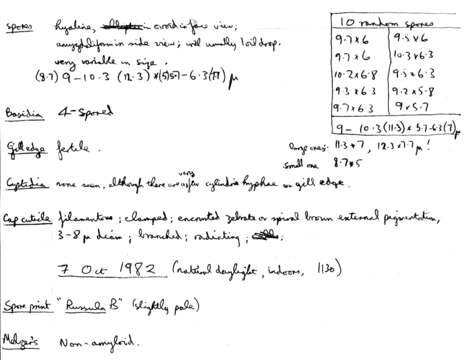 Spores hyaline, ovoid in face view;
amygdaliform in side view; with usually 1 oil drop.
very variable in size.
(8.7) 9 – 10.3 (12.3) × (5) 5.7 – 6.3 (7.7) µ
10 random spores
9.7 × 6 9.3 × 6
9.7 × 6 10.3 × 6.3
10.2 × 6.8 9.3 × 6.3
9.3 × 6.3 9.3 × 5.8
9.7 × 6.3 9 × 5.7
9 – 10.3 (11.3) × 5.7–6.3 (7) µ
large ones: 11.3 × 7, 12.3 × 7.7 µ!
small one 8.7 × 5
Basidia 4-spored
Gill edge fertile.
Cystidia none seen, although there are a few very cylindric hyphae on gill edge.
Cap cuticle filamentous; clamped; encrusted zebrate or spiral brown external pigmentation,
3–8 µ diam; branched; radiating;
7 Oct 1982 (natural daylight, indoors, 1130)
Spore print "Russula B" (slightly pale)
Melzer's Non-amyloid.